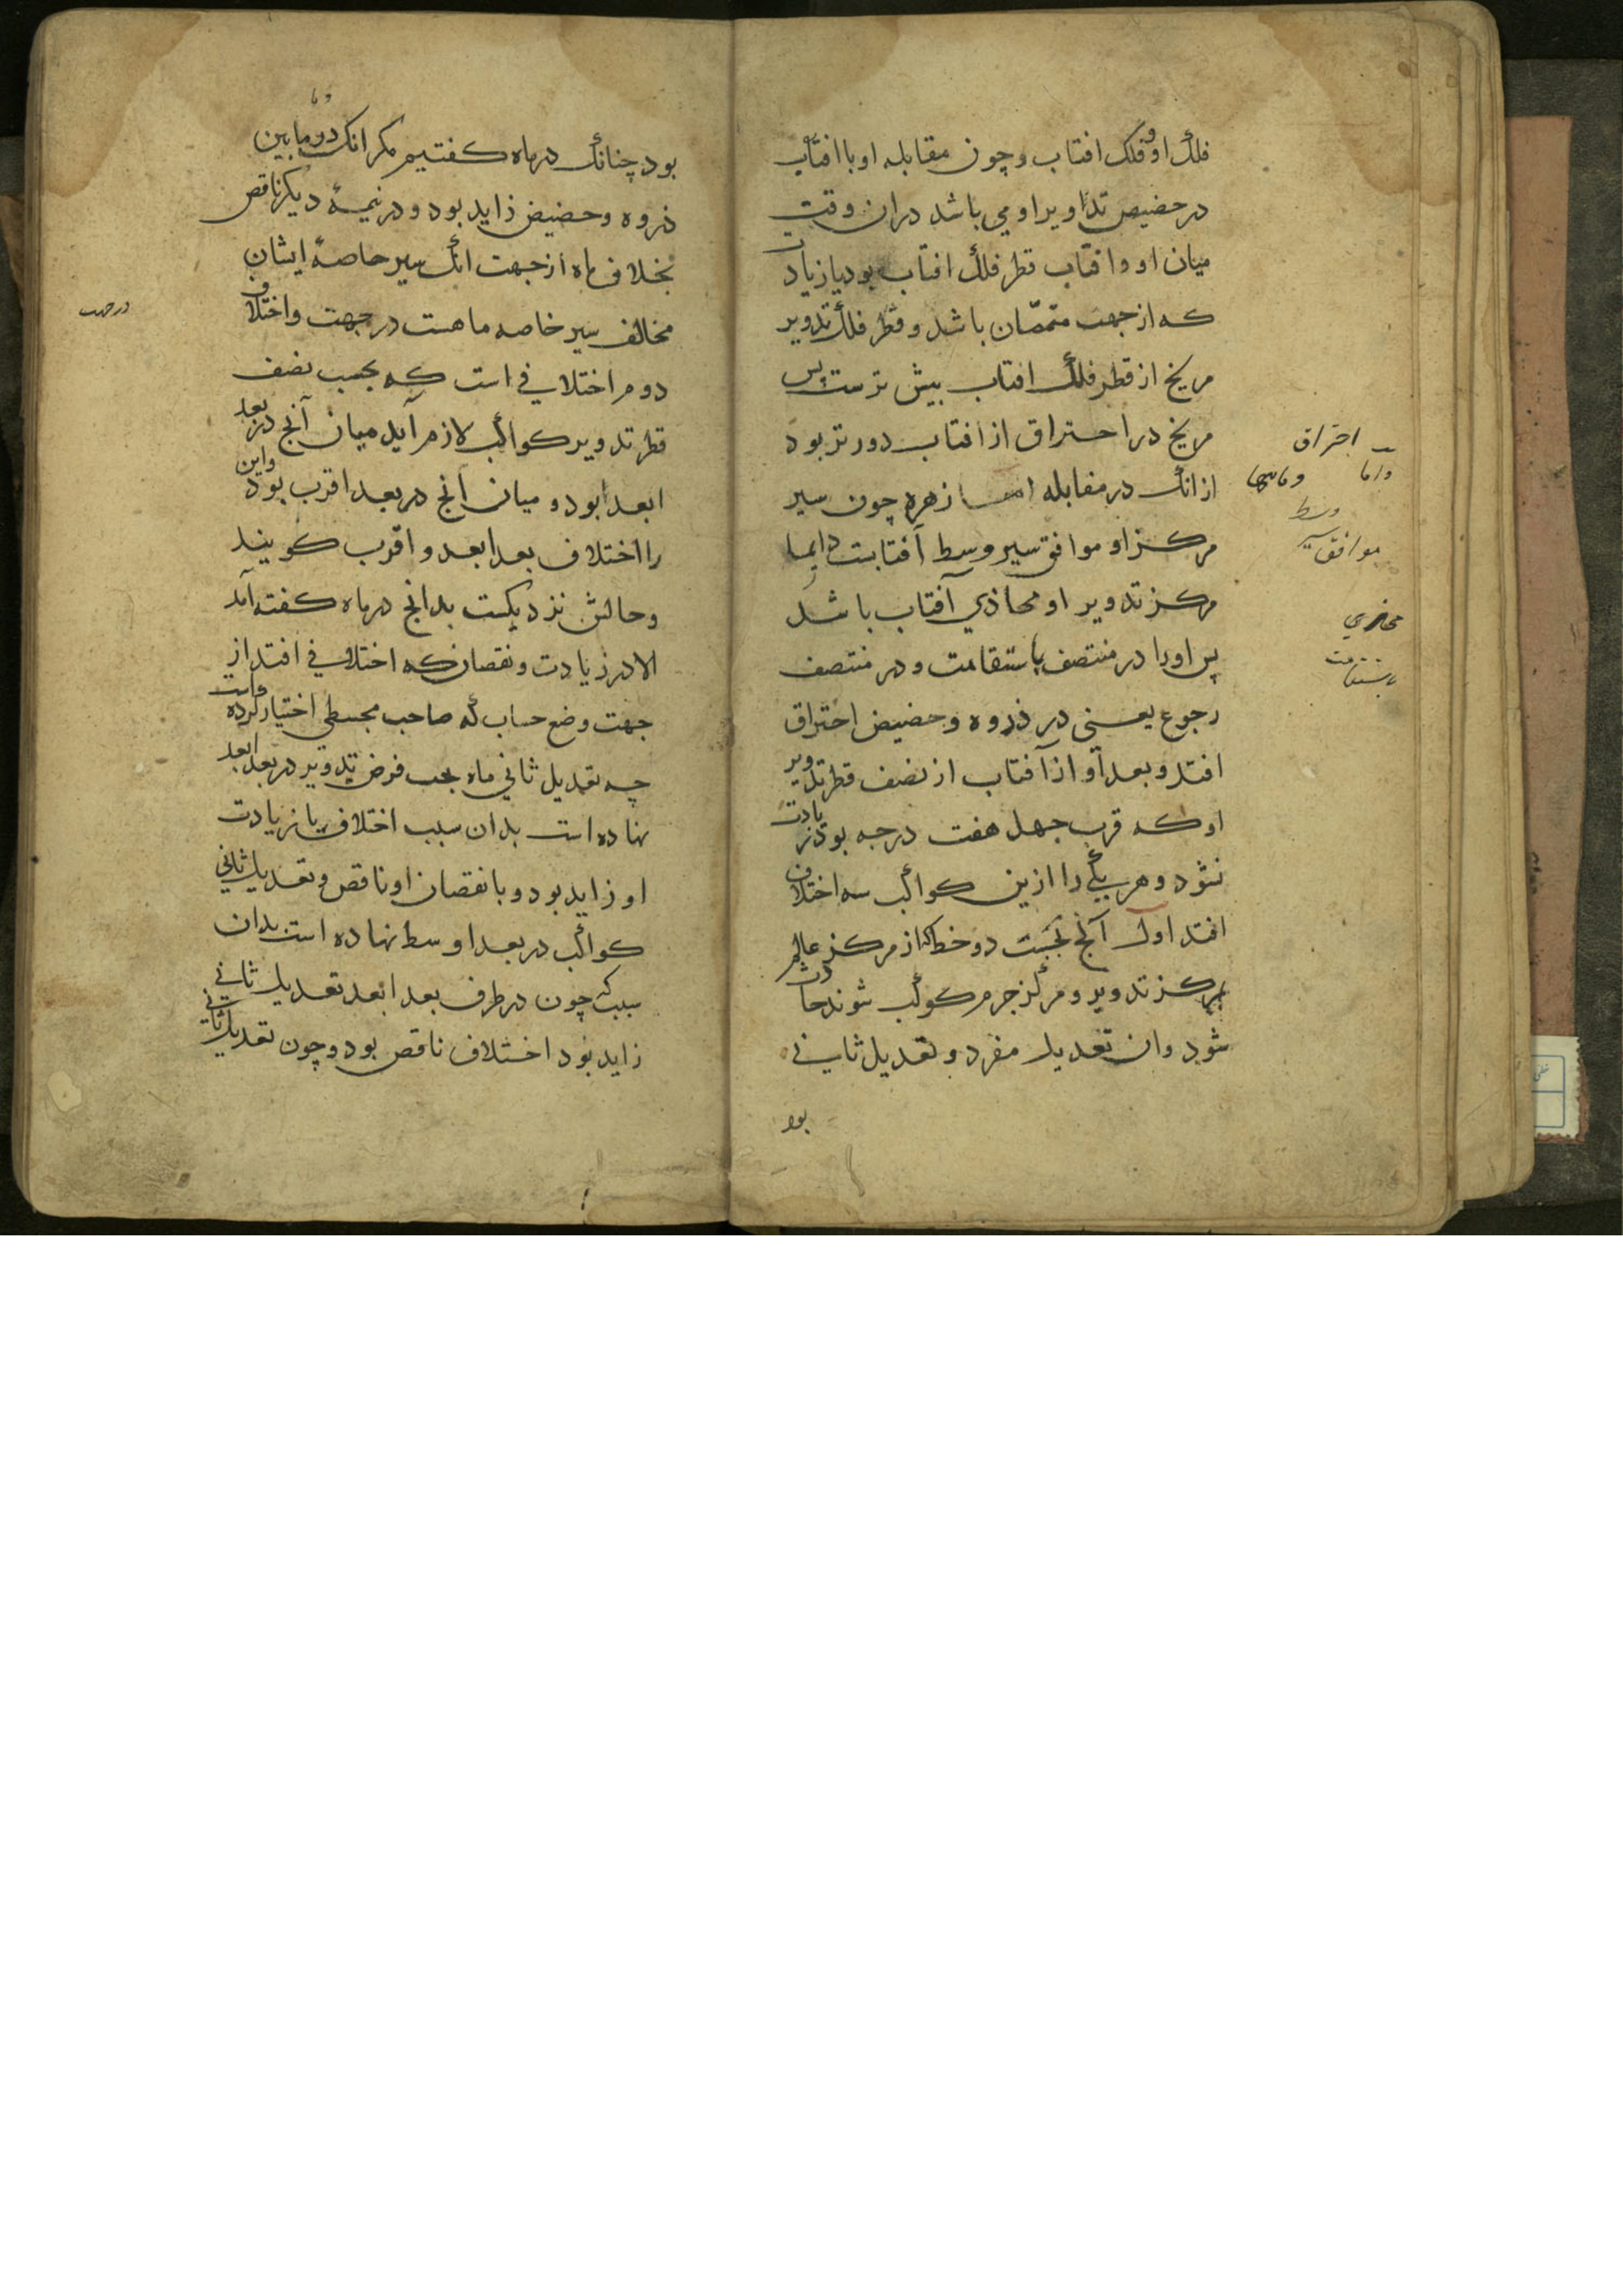 فلک او و فلک افتاب و چون مقابله او با افتاب
در حضیض تداویر او می باشد در ان وقت
میان او و افتاب قطر فلک افتاب بود یا زیادت
که از جهت متممان باشد و قطر فلک تدویر
مریخ از قطر فلک افتاب بیش ترست پس
مریخ در احتراق از افتاب دورتر بود
از انک در مقابله اما زهره چون سیر
مرکز او موافق سیر وسط آفتابست دایما
مرکز تدویر او محاذی آفتاب باشد
پس او را در منتصف باستقامت و در منتصف
رجوع یعنی در ذروه و حضیض احتراق
افتد و بعد او از آفتاب از نصف قطر تدویر
او که قرب چهل هفت درجه بود زیادت
نشود و هر یکی را ازین کواکب سه اختلاف
افتد اول آنچ بحسب دو خط که از مرکز عالم
بمرکز تدویر و مرکز جرم کوکب شوند حادث
شود و ان تعدیل مفرد و تعدیل ثانی
بود
احتراق
واما
وسط
موافق سیر
محاذی
باستقامت
بود چنانک در ماه کفتیم مکر انک در ما بین
ذروه و حضیض زاید بود و در نیمهٔ دیکر ناقص
بخلاف ماه از جهت انک سیر خاصهٔ ایشان
مخالف سیر خاصه ماهست در جهت و اختلاف
دوم اختلافی است که بحسب نصف
قطر تدویر کواکب لازم آید میان آنچ در بعد
ابعد بود و میان انچ در بعد اقرب بود و این
را اختلاف بعد ابعد و اقرب کویند
و حالش نزدیکست بدانچ در ماه کفته آمد
الا در زیادت و نقصان که اختلافی افتد از
جهت وضع حساب که صاحب مجسطی اختیار کرده است
چه تعدیل ثانی ماه بحسب فرض تدویر در بعد ابعد
نهاده است بدان سبب اختلاف با زیادت
او زاید بود و با نقصان او ناقص و تعدیل ثانی
کواکب در بعد اوسط نهاده است بدان
سبب که چون در طرف بعد ابعد تعدیل ثانی
زاید بود اختلاف ناقص بود و چون تعدیل ثانی